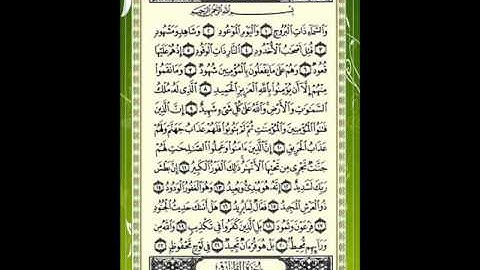 بِسْمِ اللَّهِ الرَّحْمَٰنِ الرَّحِيمِ
وَالسَّمَاءِ ذَاتِ الْبُرُوجِ ١ وَالْيَوْمِ الْمَوْعُودِ ٢ وَشَاهِدٍ وَمَشْهُودٍ
٣ قُتِلَ أَصْحَابُ الْأُخْدُودِ ٤ النَّارِ ذَاتِ الْوَقُودِ ٥ إِذْ هُمْ عَلَيْهَا
قُعُودٌ ٦ وَهُمْ عَلَىٰ مَا يَفْعَلُونَ بِالْمُؤْمِنِينَ شُهُودٌ ٧ وَمَا نَقَمُوا
مِنْهُمْ إِلَّا أَن يُؤْمِنُوا بِاللَّهِ الْعَزِيزِ الْحَمِيدِ ٨ الَّذِي لَهُ مُلْكُ
السَّمَاوَاتِ وَالْأَرْضِ وَاللَّهُ عَلَىٰ كُلِّ شَيْءٍ شَهِيدٌ ٩ إِنَّ الَّذِينَ
فَتَنُوا الْمُؤْمِنِينَ وَالْمُؤْمِنَاتِ ثُمَّ لَمْ يَتُوبُوا فَلَهُمْ عَذَابُ جَهَنَّمَ وَلَهُمْ
عَذَابُ الْحَرِيقِ ١٠ إِنَّ الَّذِينَ آمَنُوا وَعَمِلُوا الصَّالِحَاتِ لَهُمْ
جَنَّاتٌ تَجْرِي مِن تَحْتِهَا الْأَنْهَارُ ذَٰلِكَ الْفَوْزُ الْكَبِيرُ ١١ إِنَّ بَطْشَ
رَبِّكَ لَشَدِيدٌ ١٢ إِنَّهُ هُوَ يُبْدِئُ وَيُعِيدُ ١٣ وَهُوَ الْغَفُورُ الْوَدُودُ ١٤
ذُو الْعَرْشِ الْمَجِيدُ ١٥ فَعَّالٌ لِّمَا يُرِيدُ ١٦ هَلْ أَتَاكَ حَدِيثُ الْجُنُودِ
١٧ فِرْعَوْنَ وَثَمُودَ ١٨ بَلِ الَّذِينَ كَفَرُوا فِي تَكْذِيبٍ ١٩ وَاللَّهُ مِن
وَرَائِهِم مُّحِيطٌ ٢٠ بَلْ هُوَ قُرْآنٌ مَّجِيدٌ ٢١ فِي لَوْحٍ مَّحْفُوظٍ ٢٢
سُورَةُ الطَّارِقِ